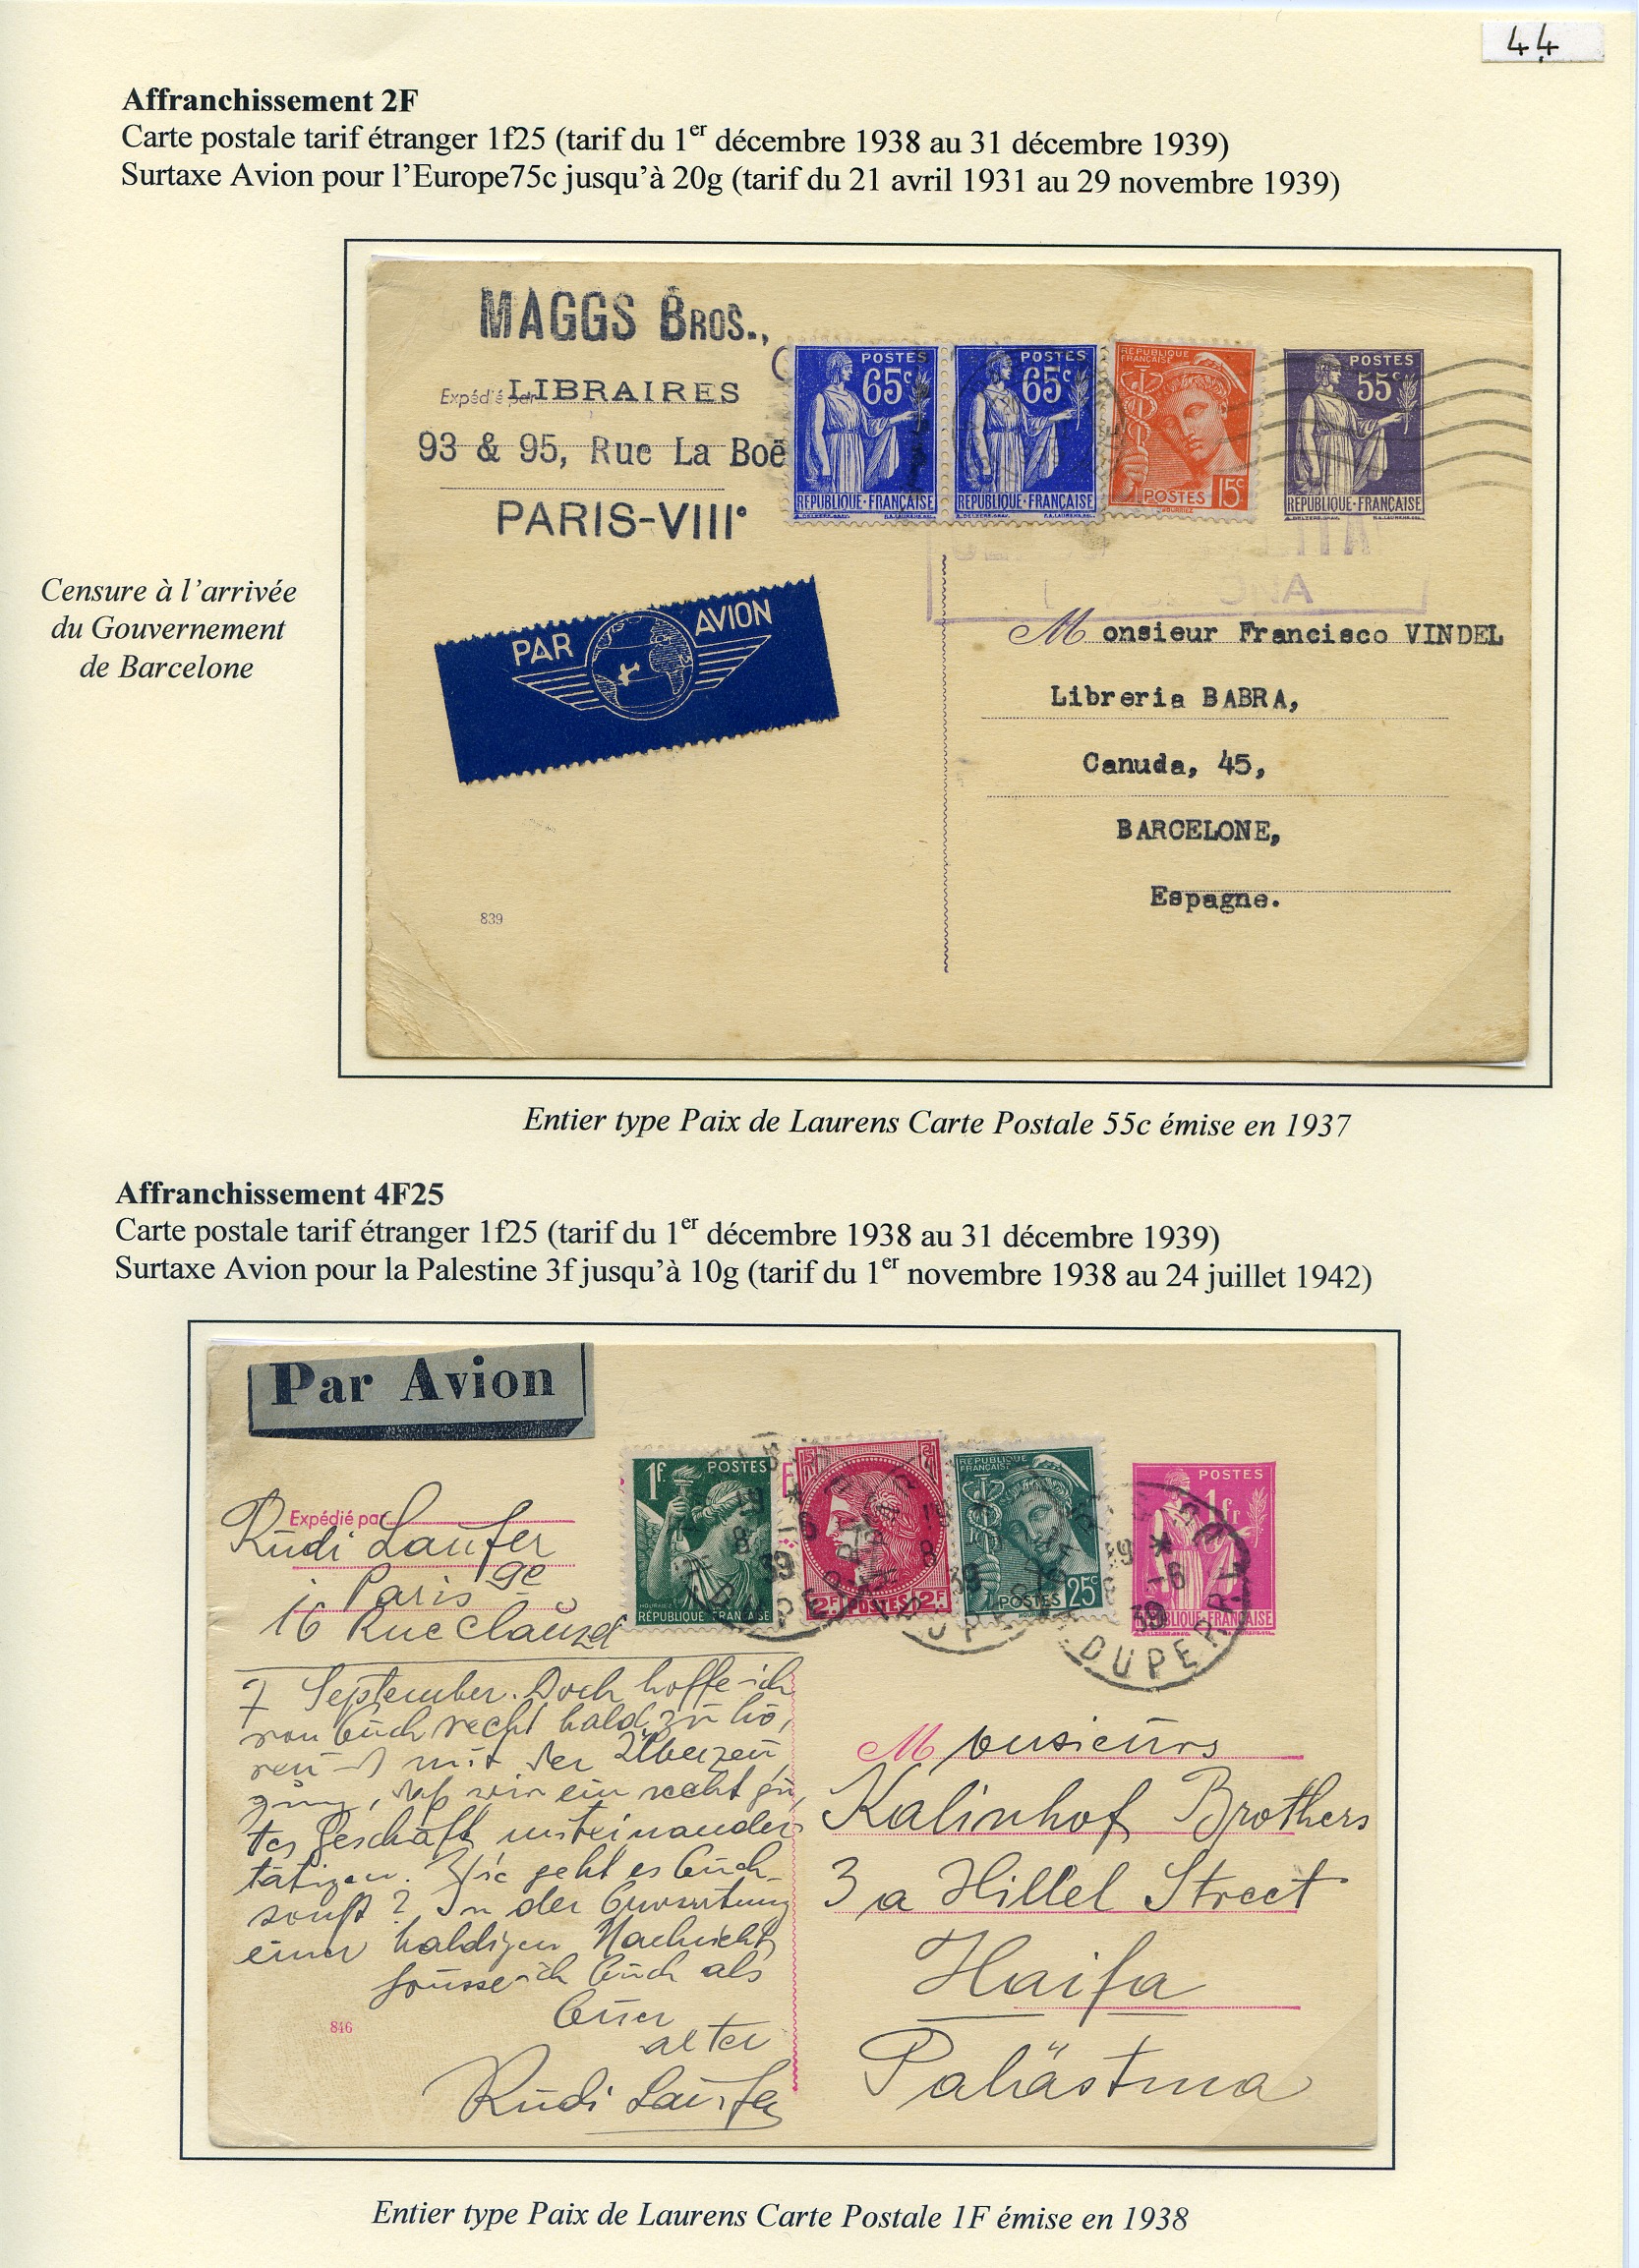 44
Affranchissement 2F
Carte postale tarif étranger 1f25 (tarif du 1er décembre 1938 au 31 décembre 1939)
Surtaxe Avion pour l'Europe75c jusqu'à 20g (tarif du 21 avril 1931 au 29 novembre 1939)
MAGGS BROS.,
Expédié par
LIBRAIRES
93 & 95, Rue La Boë
PARIS-VIII°
POSTES
65c
RÉPUBLIQUE·FRANÇAISE
POSTES
65c
RÉPUBLIQUE·FRANÇAISE
RÉPUBLIQUE
FRANÇAISE
POSTES 15c
POSTES
55c
RÉPUBLIQUE·FRANÇAISE
Censure à l'arrivée
du Gouvernement
de Barcelone
PAR AVION
Monsieur Francisco VINDEL
Libreria BABRA,
Canuda, 45,
BARCELONE,
Espagne.
839
Entier type Paix de Laurens Carte Postale 55c émise en 1937
Affranchissement 4F25
Carte postale tarif étranger 1f25 (tarif du 1er décembre 1938 au 31 décembre 1939)
Surtaxe Avion pour la Palestine 3f jusqu'à 10g (tarif du 1er novembre 1938 au 24 juillet 1942)
Par Avion
1f. POSTES
RÉPUBLIQUE FRANÇAISE
2F POSTES 2F
RÉPUBLIQUE
FRANÇAISE
POSTES 25c
POSTES
1fr
RÉPUBLIQUE·FRANÇAISE
39
DUPERRÉ
Expédié par
Rudi Laufer
Paris 9e
16 Rue Clauzel
7 September. Doch hoffe ich
von Euch recht bald zu hö,
ren mit der Überzeu
gung, daß wir ein recht gu,
tes Geschäft miteinander
tätigen. Wie geht es Euch
sonst? In der Erwartung
einer baldigen Nachricht,
grüsse ich Euch als
Euer
alter
Rudi Laufer
846
Monsieurs
Kalinhof Brothers
3 a Hillel Street
Haifa
Palästina
Entier type Paix de Laurens Carte Postale 1F émise en 1938